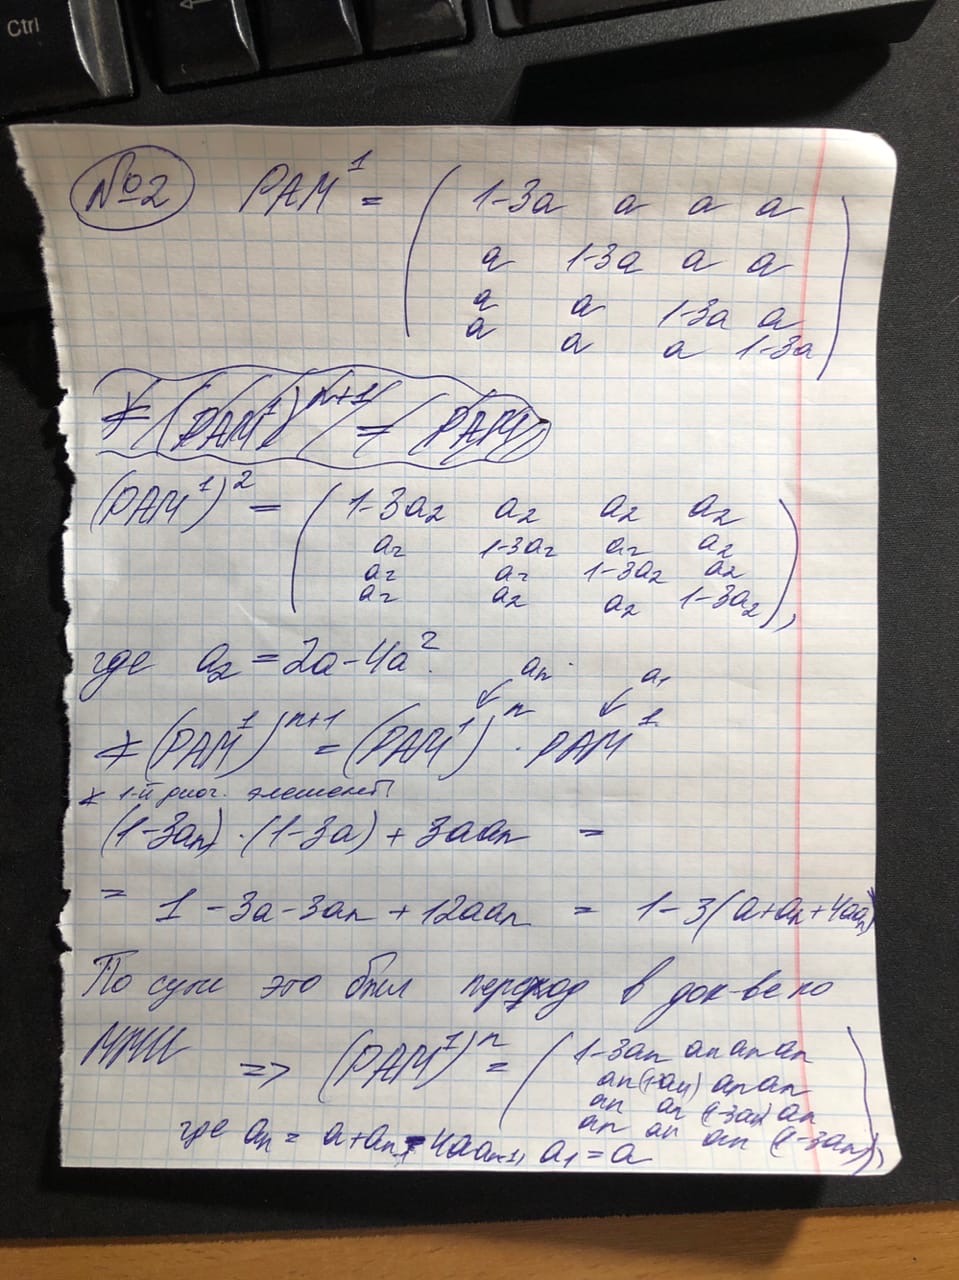 Ctrl
№2 PAM¹ = ( 1-3a a a a
a 1-3a a a
a a 1-3a a
a a a 1-3a )
* (PAM¹)ⁿ⁺¹ = PAM
(PAM¹)² = ( 1-3a₂ a₂ a₂ a₂
a₂ 1-3a₂ a₂ a₂
a₂ a₂ 1-3a₂ a₂
a₂ a₂ a₂ 1-3a₂ ),
где a₂ = 2a-4a².
aₙ a₁
* (PAM¹)ⁿ⁺¹ = (PAM¹)ⁿ · PAM¹
* 1-й диаг. элемент:
(1-3aₙ)·(1-3a) + 3aaₙ =
= 1-3a-3aₙ+12aaₙ = 1-3(a+aₙ+4aaₙ)
По сути это был переход в док-ве по
ММИ => (PAM¹)ⁿ = ( 1-3aₙ aₙ aₙ aₙ
aₙ aₙ aₙ
aₙ aₙ (1-3aₙ) aₙ
aₙ aₙ aₙ (1-3aₙ) ),
где aₙ = a+aₙ - 4aaₙ₋₁, a₁ = a